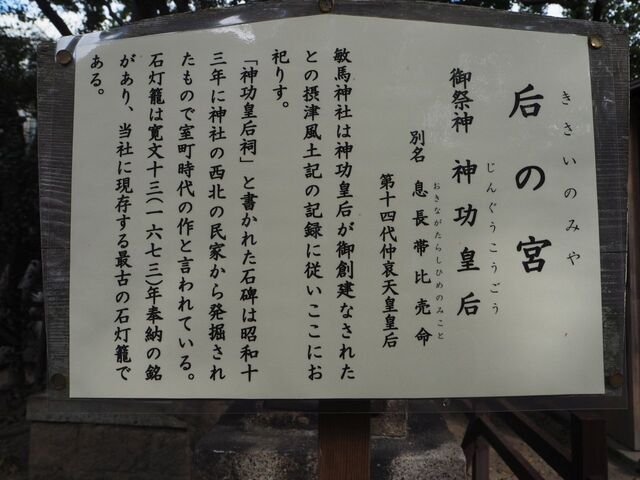 きさいのみや
后の宮
じんぐうこうごう
御祭神 神功皇后
おきながたらしひめのみこと
別名 息長帯比売命
第十四代仲哀天皇皇后
敏馬神社は神功皇后が御創建なされた
との摂津風土記の記録に従いここにお
祀りす。
「神功皇后祠」と書かれた石碑は昭和十
三年に神社の西北の民家から発掘され
たもので室町時代の作と言われている。
石灯籠は寛文十三(一六七三)年奉納の銘
があり、当社に現存する最古の石灯籠で
ある。